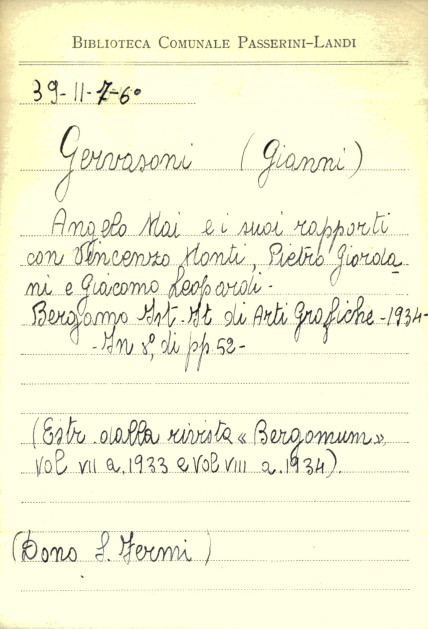 BIBLIOTECA COMUNALE PASSERINI-LANDI
39-11-7-6°
Gervasoni (Gianni)
Angelo Mai e i suoi rapporti
con Vincenzo Monti, Pietro Giorda
ni e Giacomo Leopardi -
Bergamo Ist. It. di Arti Grafiche - 1934 -
- In 8°, di pp 52 -
(Estr. dalla rivista « Bergomum »,
vol VII a. 1933 e vol VIII a. 1934).
(Dono S. Fermi)